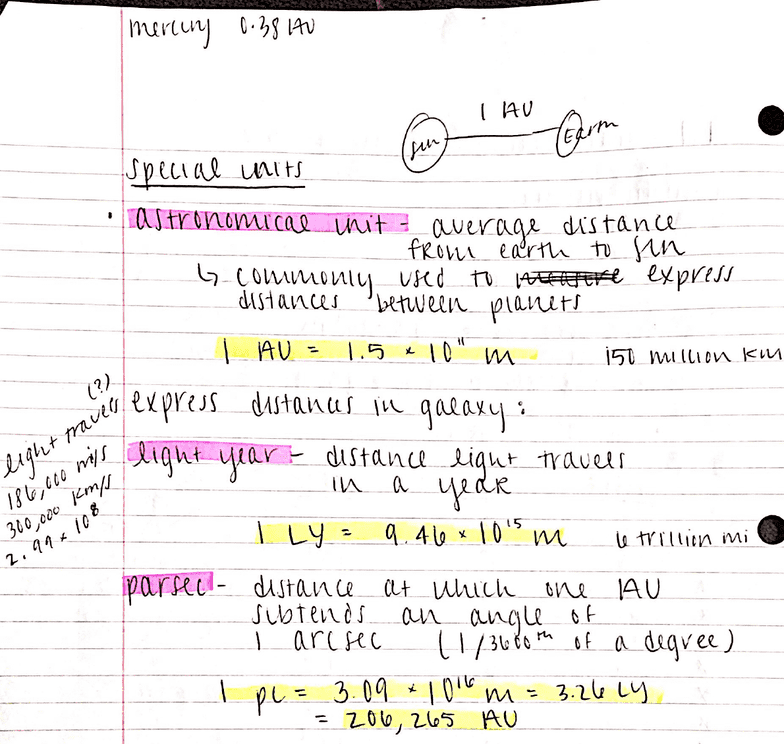 mercury 0.38 AU
1 AU
sun Earth
special units
• astronomical unit - average distance
from earth to sun
↳ commonly used to measure express
distances between planets
1 AU = 1.5 × 10¹¹ m 150 million km
express distances in galaxy:
(?)
light travels
186,000 mi/s
300,000 km/s
2.99 × 10⁸
light year - distance light travels
in a year
1 LY = 9.46 × 10¹⁵ m 6 trillion mi
parsec - distance at which one AU
subtends an angle of
1 arcsec (1/3600th of a degree)
1 pc = 3.09 × 10¹⁶ m = 3.26 LY
= 206,265 AU